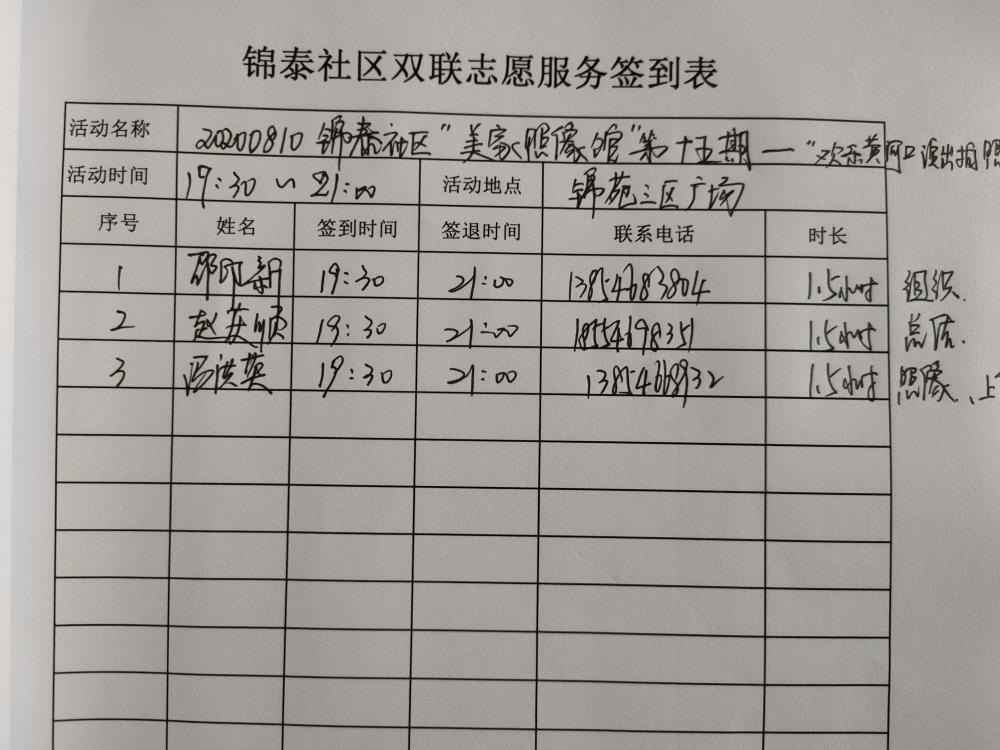 锦泰社区双联志愿服务签到表
活动名称 20200810 锦泰社区"美家照像馆"第十五期一"欢乐黄河口演出拍照
活动时间 19:30 ~ 21:00 活动地点 锦苑三区广场
序号 姓名 签到时间 签退时间 联系电话 时长
1 邵印新 19:30 21:00 13854683804 1.5小时 组织.
2 赵英顺 19:30 21:00 18554698351 1.5小时 总结.
3 冯洪英 19:30 21:00 13854668932 1.5小时 照像、上